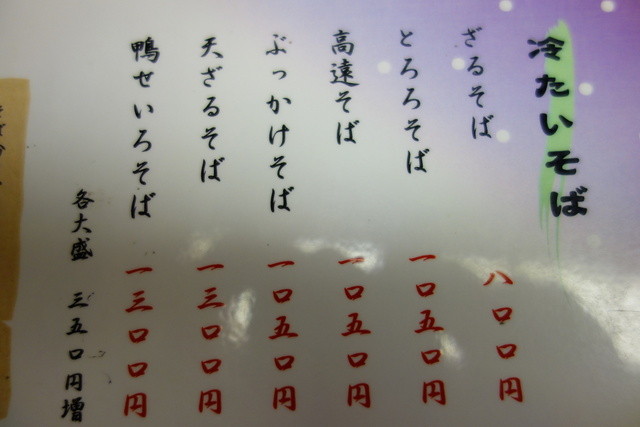 冷たいそば
ざるそば 八〇〇円
とろろそば 一〇五〇円
高遠そば 一〇五〇円
ぶっかけそば 一〇五〇円
天ざるそば 一三〇〇円
鴨せいろそば 一三〇〇円
各大盛 三五〇円増